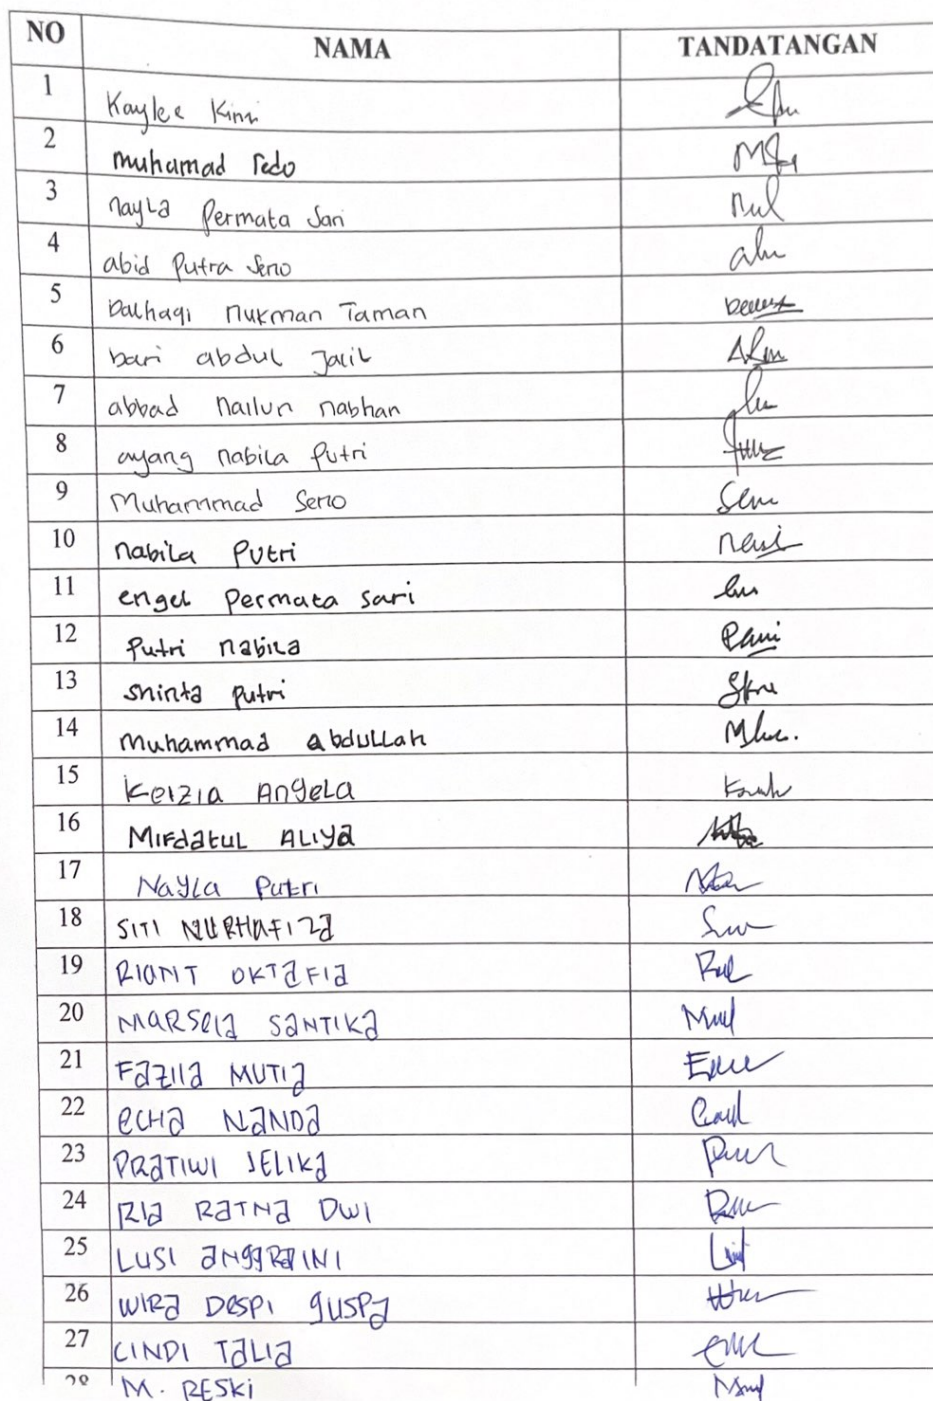 NO NAMA TANDATANGAN
1 Kaylee Kinn
2 muhamad redo
3 nayla Permata Sari
4 abid Putra Seno
5 balhaqi nukman Taman
6 bari abdul Jalil
7 abbad nailun nabhan
8 ayang nabila Putri
9 Muhammad Seno
10 nabila Putri
11 engel Permata Sari
12 Putri nabila
13 shinta Putri
14 Muhammad abdullah
15 Keizia Angela
16 Mifdatul Aliya
17 Nayla Putri
18 SITI NURHAFIZa
19 RIANT OKTaFIa
20 MaRSela SaNTIKa
21 Fazila MUTIa
22 eCHa NaNDa
23 PRaTIWI JELIKa
24 RIa RaTNa DWI
25 LUSI aNggRaINI
26 WIRa DesPI gUSPa
27 CINDI TaLIa
28 M. RESKi